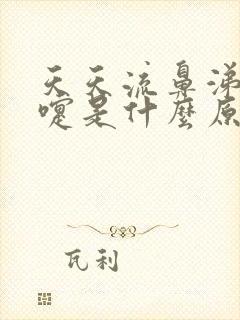 天天流鼻涕
嚏是什麼原
瓦利